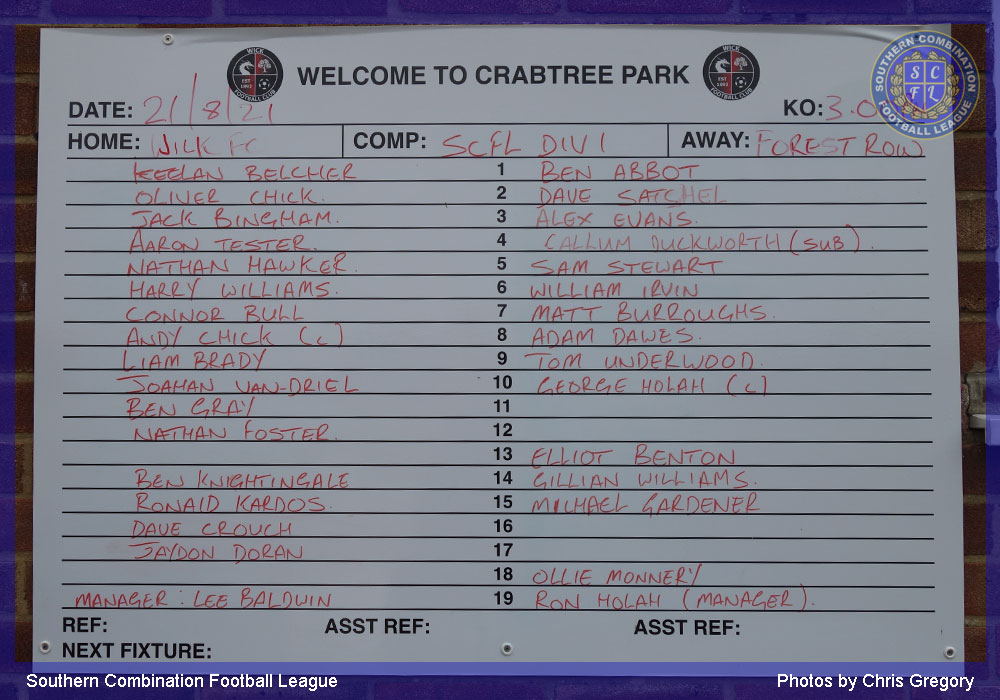 WELCOME TO CRABTREE PARK
DATE: 21/8/21 KO: 3.0
HOME: WICK FC COMP: SCFL DIV 1 AWAY: FOREST ROW
KEELAN BELCHER 1 BEN ABBOT
OLIVER CHICK. 2 DAVE SATCHEL
JACK BINGHAM. 3 ALEX EVANS.
AARON TESTER. 4 CALLUM DUCKWORTH (SUB).
NATHAN HAWKER. 5 SAM STEWART
HARRY WILLIAMS. 6 WILLIAM IRVIN
CONNOR BULL 7 MATT BURROUGHS.
ANDY CHICK (C) 8 ADAM DAWES.
LIAM BRADY 9 TOM UNDERWOOD.
JOAHAN VAN-DRIEL 10 GEORGE HOLAH (C)
BEN GRAY 11
NATHAN FOSTER. 12
13 ELLIOT BENTON
BEN KNIGHTINGALE 14 GILLIAN WILLIAMS.
RONAID KARDOS. 15 MICHAEL GARDENER
DAVE CROUCH 16
JAYDON DORAN 17
18 OLLIE MONNERY
MANAGER: LEE BALDWIN 19 RON HOLAH (MANAGER).
REF: ASST REF: ASST REF:
NEXT FIXTURE:
SOUTHERN COMBINATION FOOTBALL LEAGUE
SCFL
WICK FOOTBALL CLUB
WICK FOOTBALL CLUB
Southern Combination Football League Photos by Chris Gregory